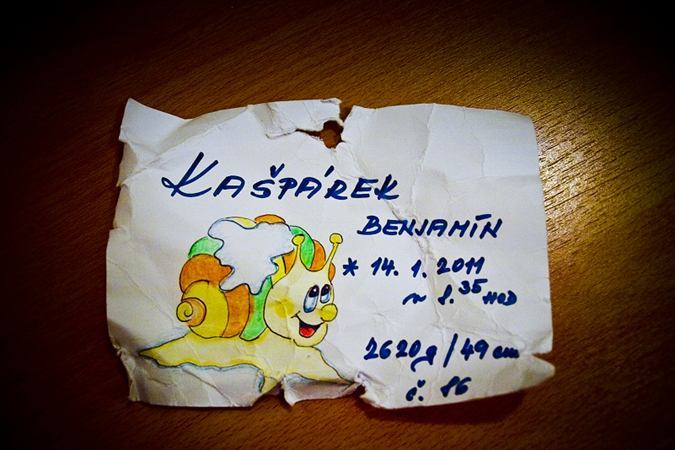 KAŠPÁREK
BENJAMÍN
* 14. 1. 2011
~ 8.35 HOD
2620g/49 cm
č. 86